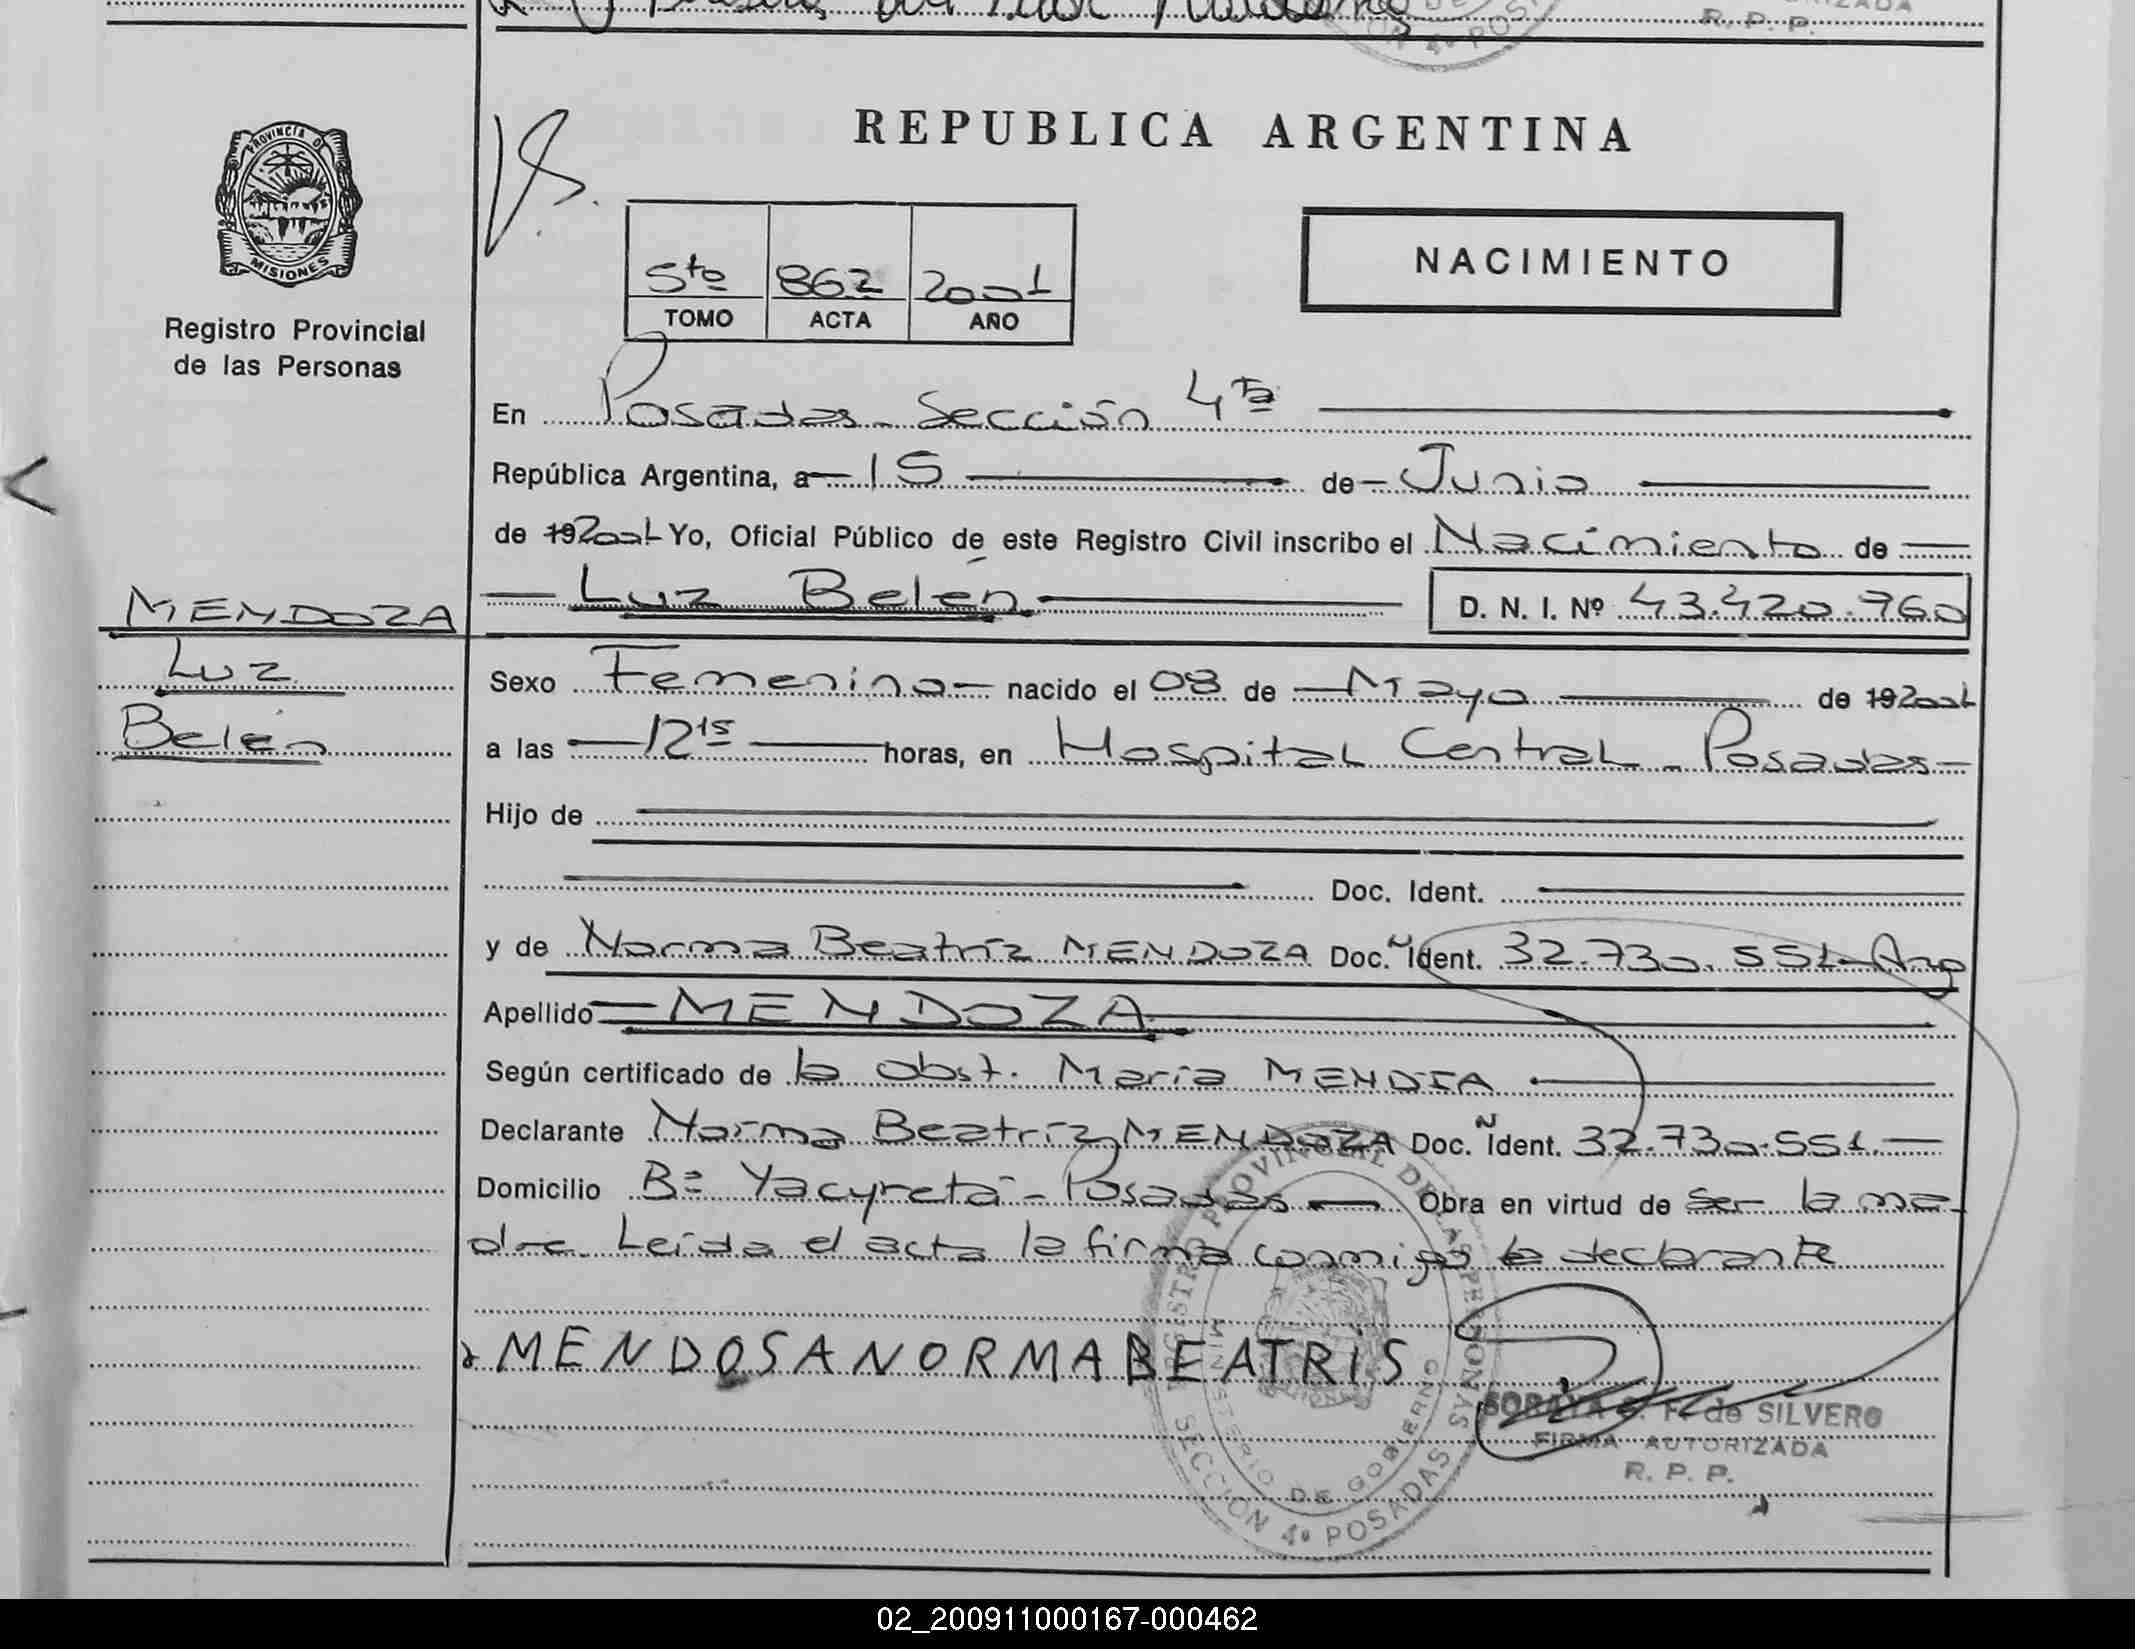 R. P. P.
PROVINCIA D
MISIONES
Registro Provincial
de las Personas
REPUBLICA ARGENTINA
5to 862 2001
TOMO ACTA AÑO
NACIMIENTO
En Posadas - Sección 4ta
República Argentina, a 15 de Junio
de 19 2001 Yo, Oficial Público de este Registro Civil inscribo el Nacimiento de
Luz Belén D. N. I. Nº 43.420.760
MENDOZA
Luz
Belén
Sexo Femenino nacido el 08 de Mayo de 19 2001
a las 12 15 horas, en Hospital Central - Posadas
Hijo de
Doc. Ident.
y de Norma Beatríz MENDOZA Doc. Ñ Ident. 32.730.551 - Arg
Apellido MENDOZA
Según certificado de la Obst. María MENDIA
Declarante Norma Beatríz MENDOZA Doc. Ñ Ident. 32.730.551.
Domicilio Bº Yacyretá - Posadas Obra en virtud de ser la ma-
dre. Leída el acta la firma conmigo la declarante
MENDOSA NORMA BEATRIS
REGISTRO PROVINCIAL DE LAS PERSONAS
MINISTERIO DE GOBIERNO
SECCION 4º POSADAS
SORAYA F. de SILVERO
FIRMA AUTORIZADA
R. P. P.
02_200911000167-000462